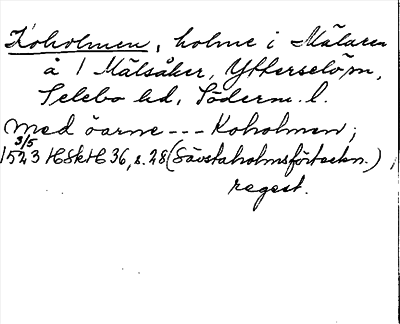 Koholmen, holme i Mälaren
å 1 Mälsåker, Ytterselö sn,
Selebo hd, Söderm. l.
Med öarne --- Koholmen;
3/5
1523 HSkH 36, s. 28 (Sävstaholmsförteckn.),
regest.